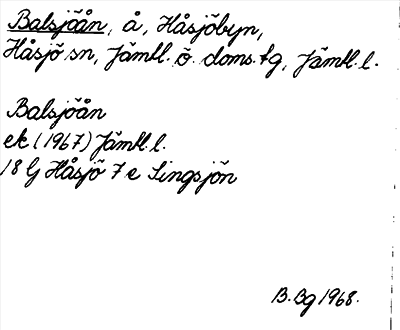 Balsjöån, å, Håsjöbyn,
Håsjö sn, Jämtl. ö. doms.tg, Jämtl. l.
Balsjöån
ek (1967) Jämtl. l.
18 G Håsjö 7 e Singsjön
B. Bg 1968.